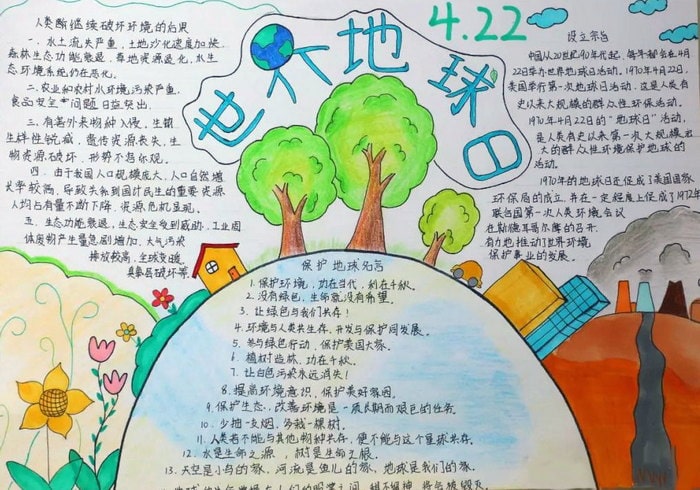 4.22
世界地球日
人类断继续破坏环境的后果
一、水土流失严重,土地沙化速度加快,
森林生态功能衰退,草地资源退化,水生
态环境系统仍在恶化。
二、农业和农村水环境污染严重,
食品安全问题日益突出。
三、有害外来物种入侵,生物
多样性锐减,遗传资源丧失,生
物资源破坏,形势不容乐观。
四、由于我国人口规模庞大,人口自然增
长率较高,导致关系到国计民生的重要资源
人均占有量不断下降,资源危机显现。
五、生态功能衰退,生态安全受到威胁,工业固
体废物产生量急剧增加,大气污染
排放较高,全球变暖,
臭氧层破坏等。
设立宗旨
中国从20世纪90年代起,每年都会在4月
22日举办世界地球日活动。1970年4月22日,
美国举行第一次地球日活动,这是人类有
史以来大规模的群众性环保活动。
1970年4月22日的“地球日”活动,
是人类有史以来第一次大规模
大的群众性环境保护地球的
活动。
1970年的地球日还促成了美国国家
环保局的成立,并在一定程度上促成了1972年
联合国第一次人类环境会议
在斯德哥尔摩的召开,
有力地推动了世界环境
保护事业的发展。
保护地球名言
1. 保护环境,功在当代,利在千秋。
2. 没有绿色,生命就没有希望。
3. 让绿色与我们共存!
4. 环境与人类共生存,开发与保护同发展。
5. 参与绿色行动,保护美国大家。
6. 植树造林,功在千秋。
7. 让白色污染永远消失!
8. 提高环境意识,保护美好家园。
9. 保护生态,改善环境是一项长期而艰巨的任务。
10. 少抽一支烟,多栽一棵树。
11. 人类若不能与其他物种共存,便不能与这个星球共存。
12. 水是生命之源,树是生命之根。
13. 天空是小鸟的家,河流是鱼儿的家,地球是我们的家。